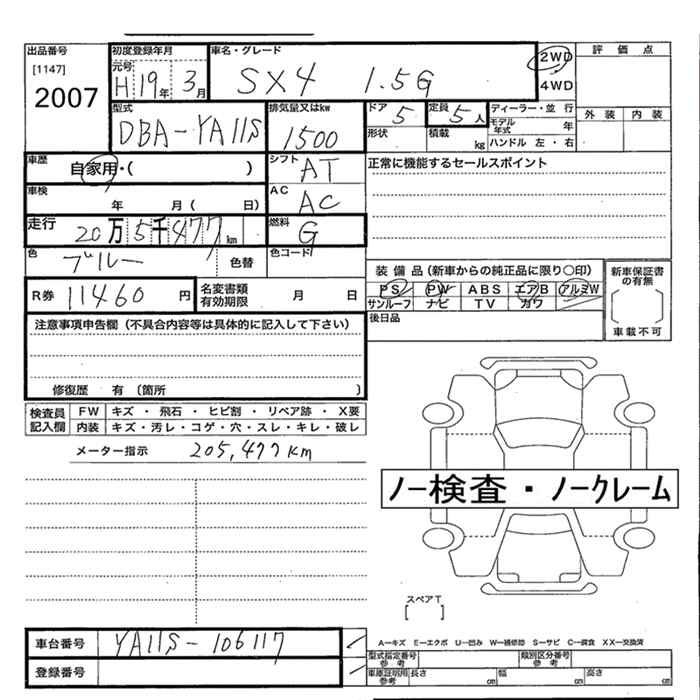 出品番号
[1147]
2007
初度登録年月
元号 H 19年 3月
車名・グレード
SX4 1.5G
2WD
4WD
評価点
外装 内装
型式
DBA-YA11S
排気量又はkw
1500
ドア 5
定員 5人
形状
積載 kg
ディーラー・並行
モデル年式 年
ハンドル 左・右
車歴
自家用・( )
シフト
AT
正常に機能するセールスポイント
車検
年 月( 日)
AC
AC
走行
20万5千477km
燃料
G
色
ブルー
色替
色コード/
R券 11460円
名変書類有効期限 月 日
装備品(新車からの純正品に限り○印)
PS PW ABS エアB アルミW
サンルーフ ナビ TV カワ
後日品
新車保証書の有無
[ ]
車載不可
注意事項申告欄(不具合内容等は具体的に記入して下さい)
修復歴 有 (箇所 )
検査員記入欄
FW キズ・飛石・ヒビ割・リペア跡・X要
内装 キズ・汚レ・コゲ・穴・スレ・キレ・破レ
メーター指示 205,477km
ノー検査・ノークレーム
スペアT
[ ]
A-キズ E-エクボ U-凹み W-補修跡 S-サビ C-腐食 XX-交換済
車台番号 YA11S-106117
登録番号
型式指定番号参考
類別区分番号参考
車庫証明用参考 長さ cm 幅 cm 高さ cm